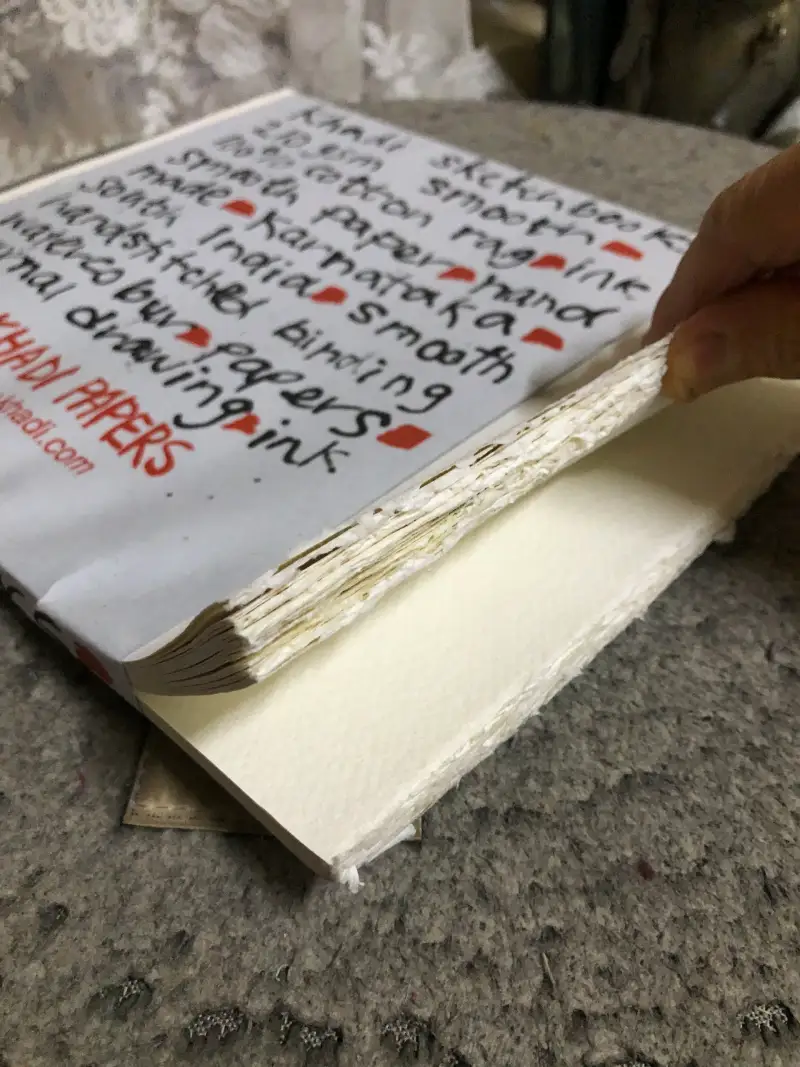 Khadi sketchbook
210 gsm smooth
100% cotton rag ink
smooth paper hand
made Karnataka
South India smooth
handstitched binding
watercolour papers
rnal drawing ink
KHADI PAPERS
khadi.com